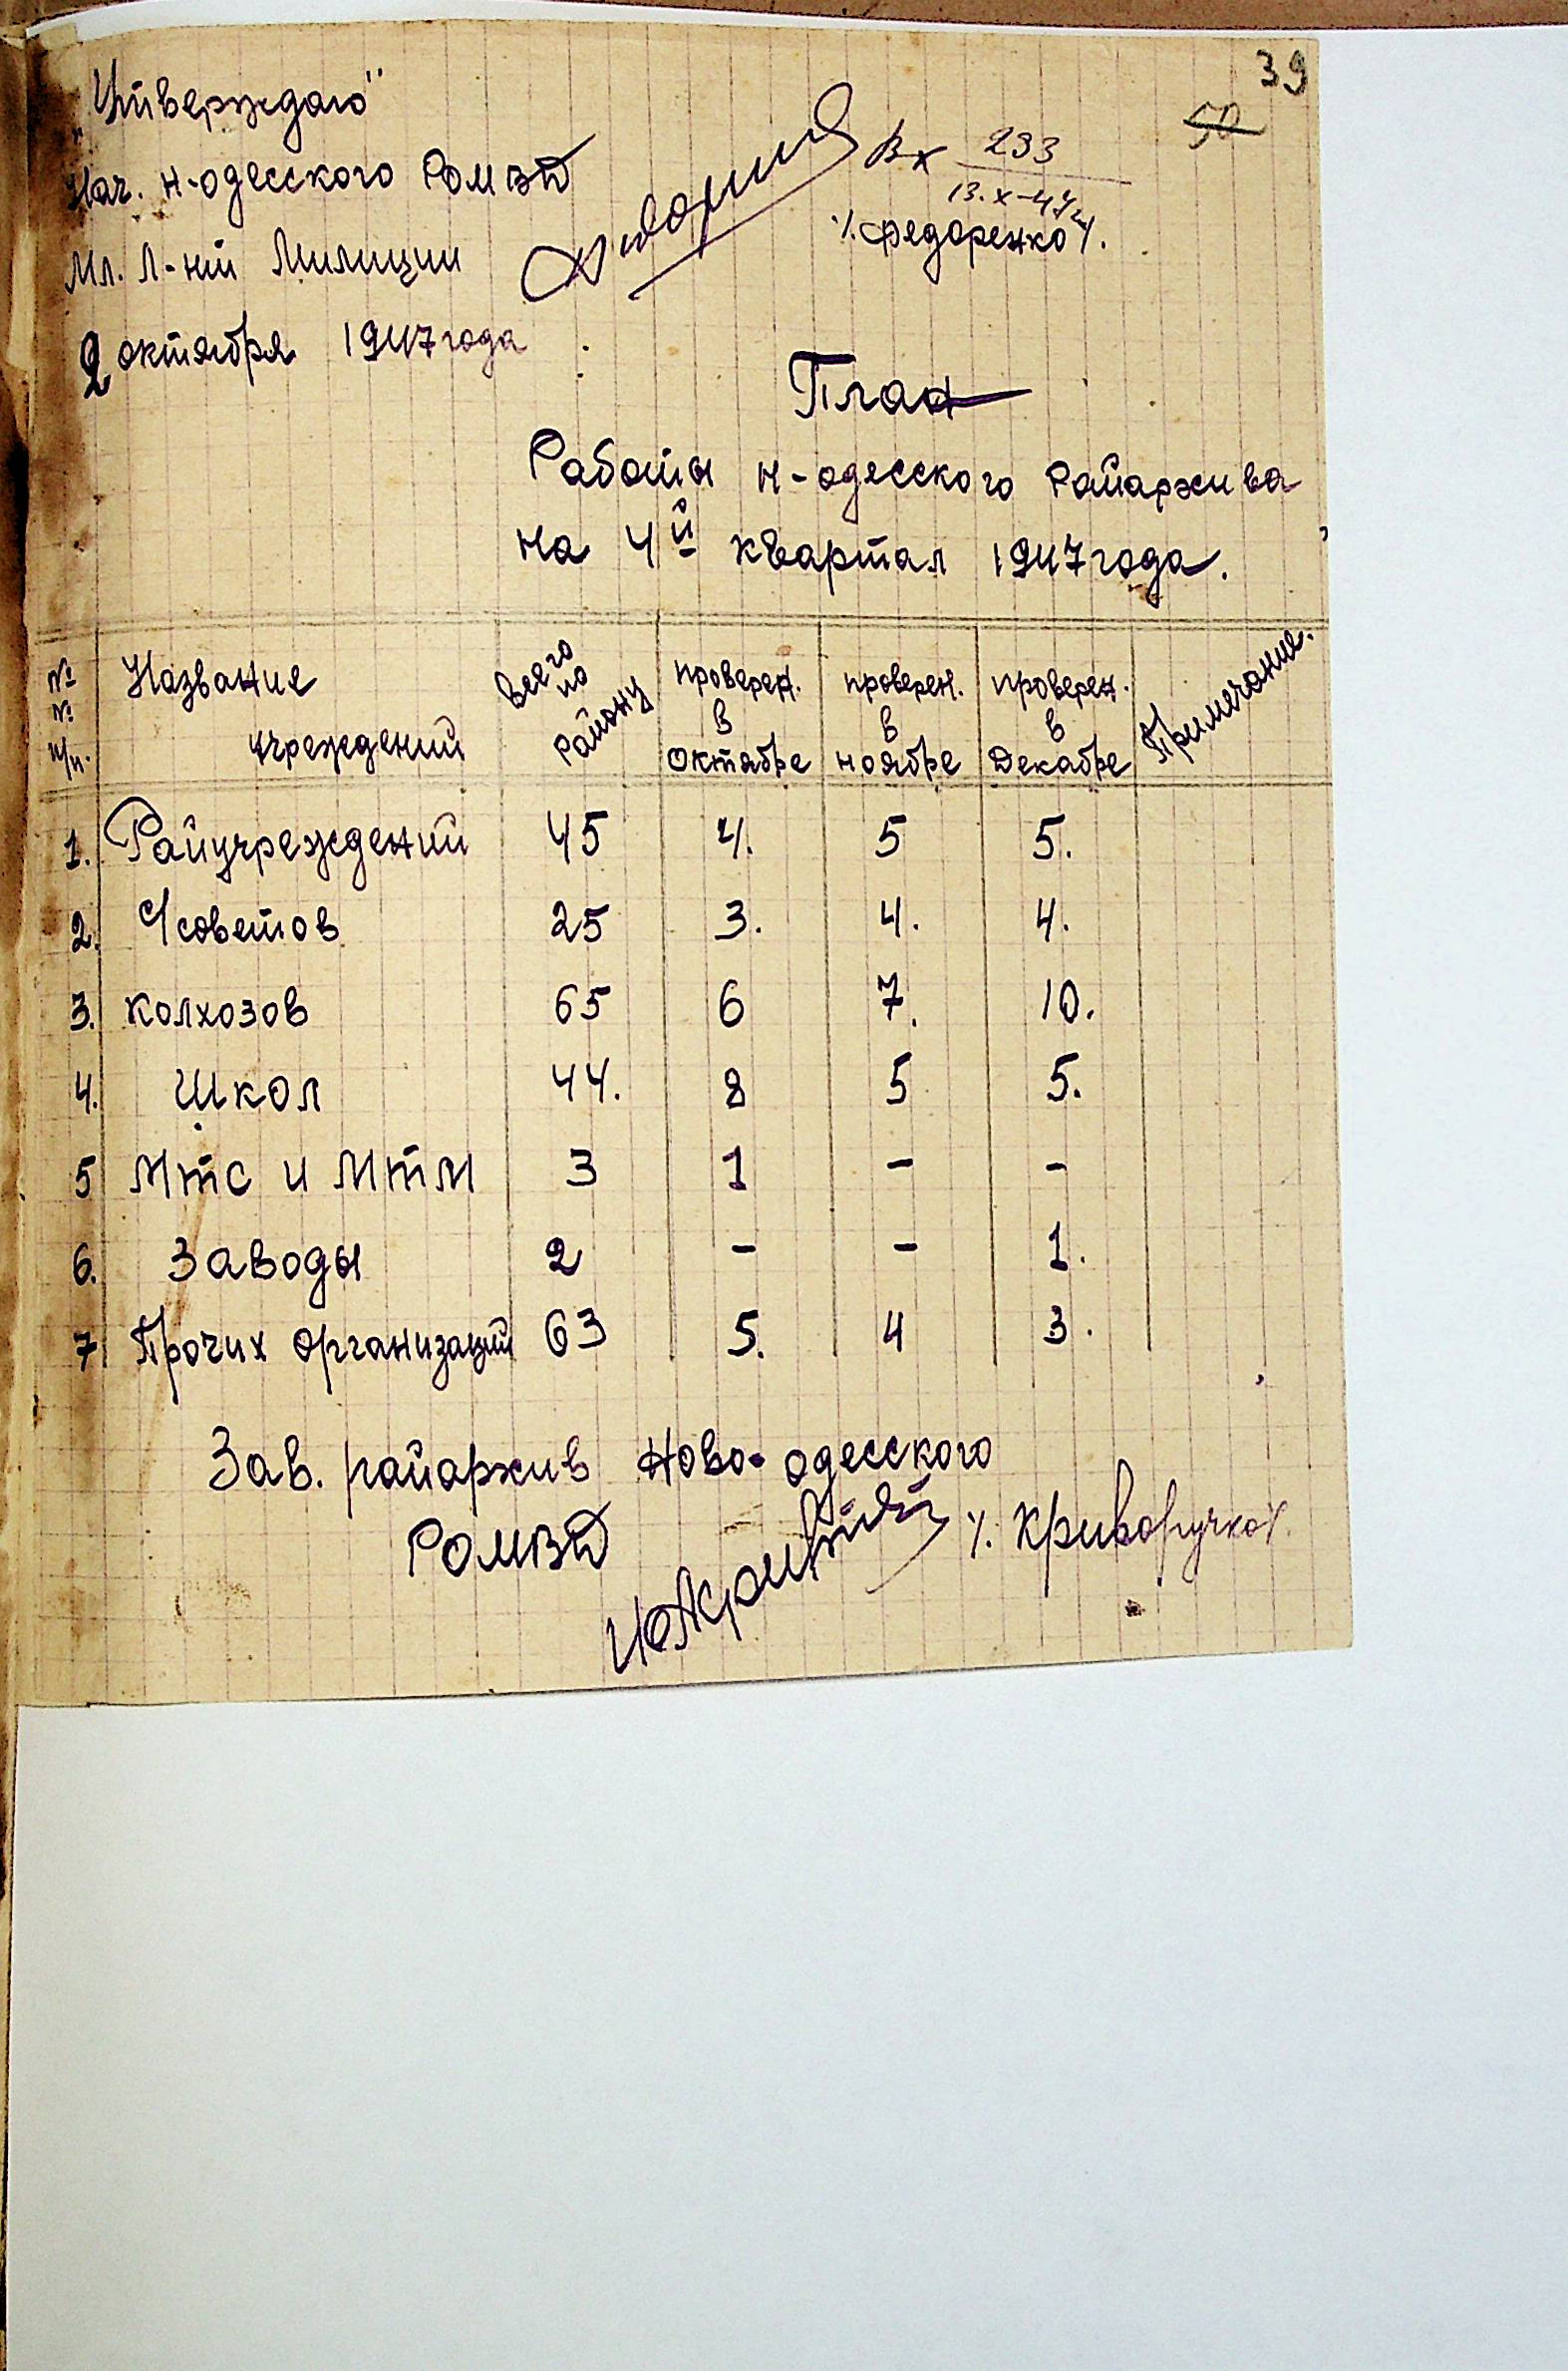 39
50
„Утверждаю"
Нач. Н-одесского РОМВД
Вх 233
13.X-47г
Мл. Л-нт Милиции /.Федоренко/.
2 октября 1947 года
План
Работы Н-одесского Райархива
на 4й квартал 1947 года.
№ № п/п. Название учреждений Всего по району проверен. в октябре проверен. в ноябре проверен. в Декабре Примечание.
1. Райучреждений 45 4. 5 5.
2. С/советов 25 3. 4. 4.
3. Колхозов 65 6 7. 10.
4. Школ 44. 8 5 5.
5 МТС и МТМ 3 1 - -
6. Заводы 2 - - 1.
7 Прочих организаций 63 5. 4 3.
Зав. райархив Ново-одесского
РОМВД /. Криворучко/.